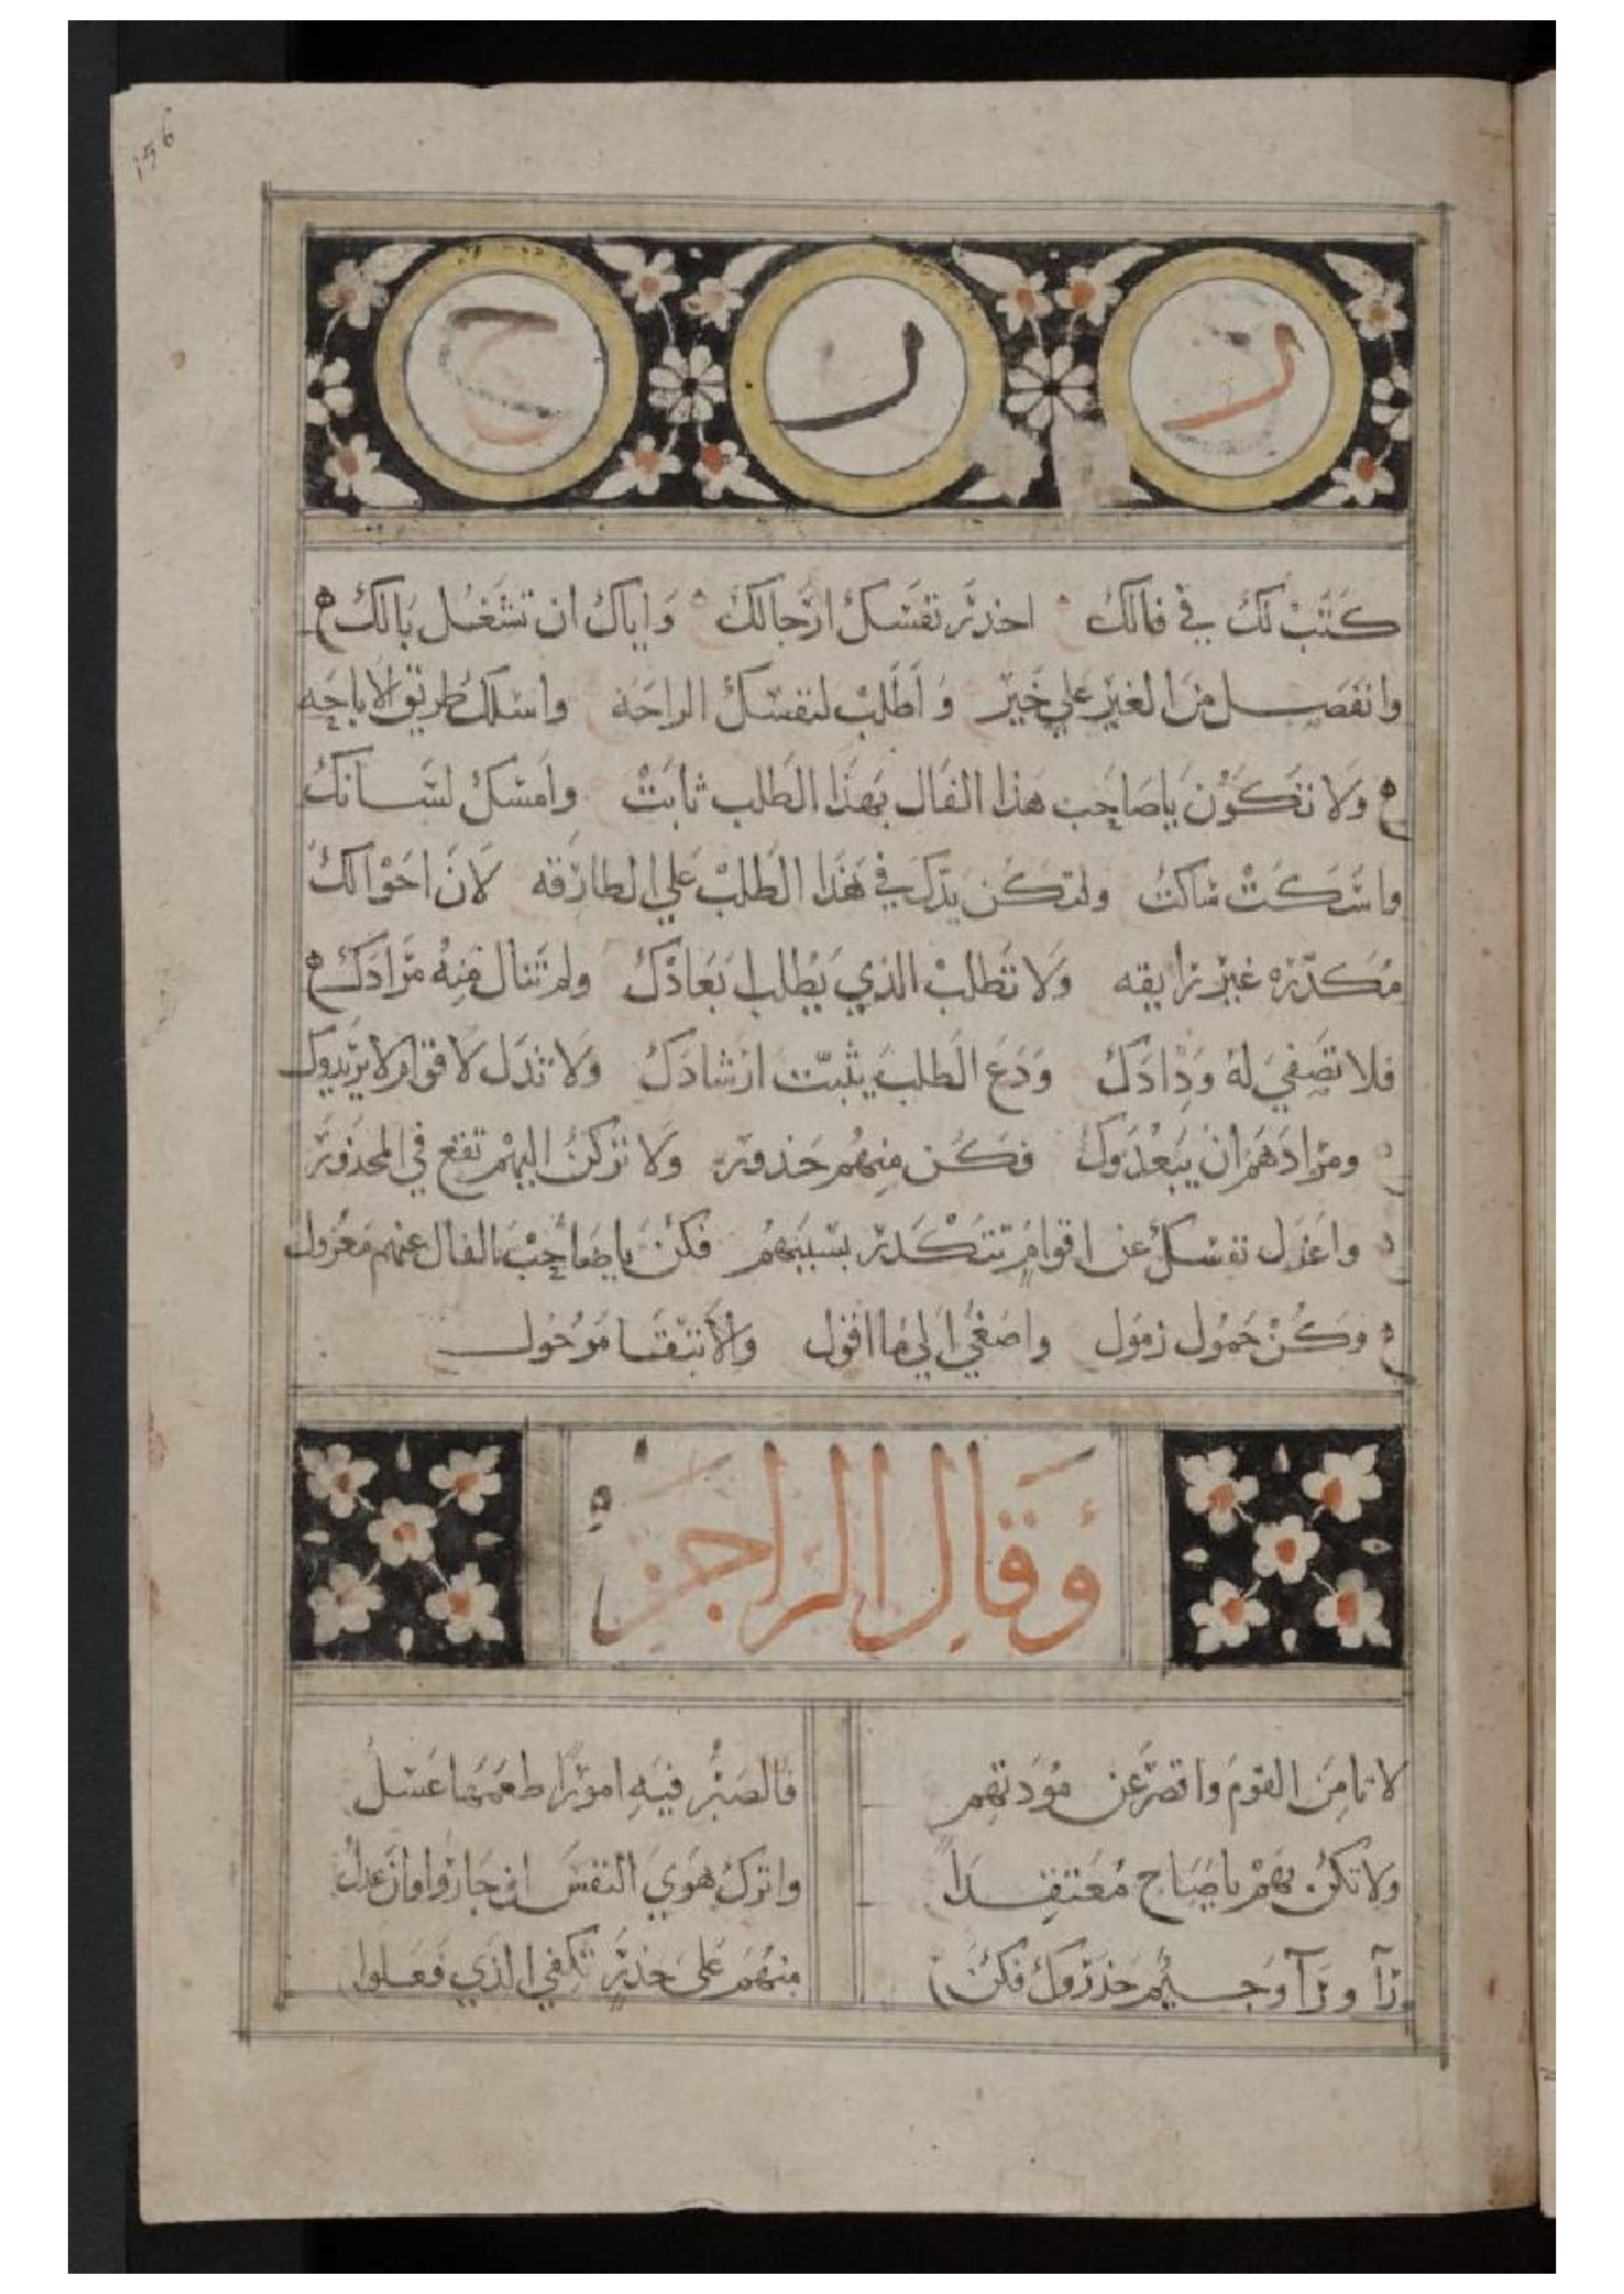 156
ر ر ح
كتبت لك في فالك احذر نفسك ارجالك واياك ان تشغل بالك
وانفصل من الغير علي خير واطلب لنفسك الراحه واسلك طريق الاباحه
ولا تكون يا صاحب هذا الفال بهذا الطلب ثابت وامسك لسانك
واسكت ساكت ولتكن يدك في هذا الطلب علي الطارقه لان احوالك
مكدره غير رايقه ولا تطلب الذي يطلب ابعادك ولم تنال منه مرادك
فلا تصفي له ودادك ودع الطلب يثبت ارشادك ولا تدل لاقوام لا يريدوك
ومرادهم ان يبعدوك فكن منهم حذور ولا تركن اليهم تقع في المحذور
واعزل نفسك عن اقوام تتكدر بسببهم فكن يا صاحب الفال عنهم معزول
وكن حمول زمول واصغي الي ما اقول والا تبقا موحول
وقال الراجز
لا تامن القوم واقصر عن مودتهم فالصبر فيه امورا طعمها عسل
ولا تكن بهم يا صاح معتقدا واترك هوي النفس ان جاروا وان عدلوا
ورآ ورآ وجيم حذروك فكن منهم على حذر تكفي الذي فعلوا